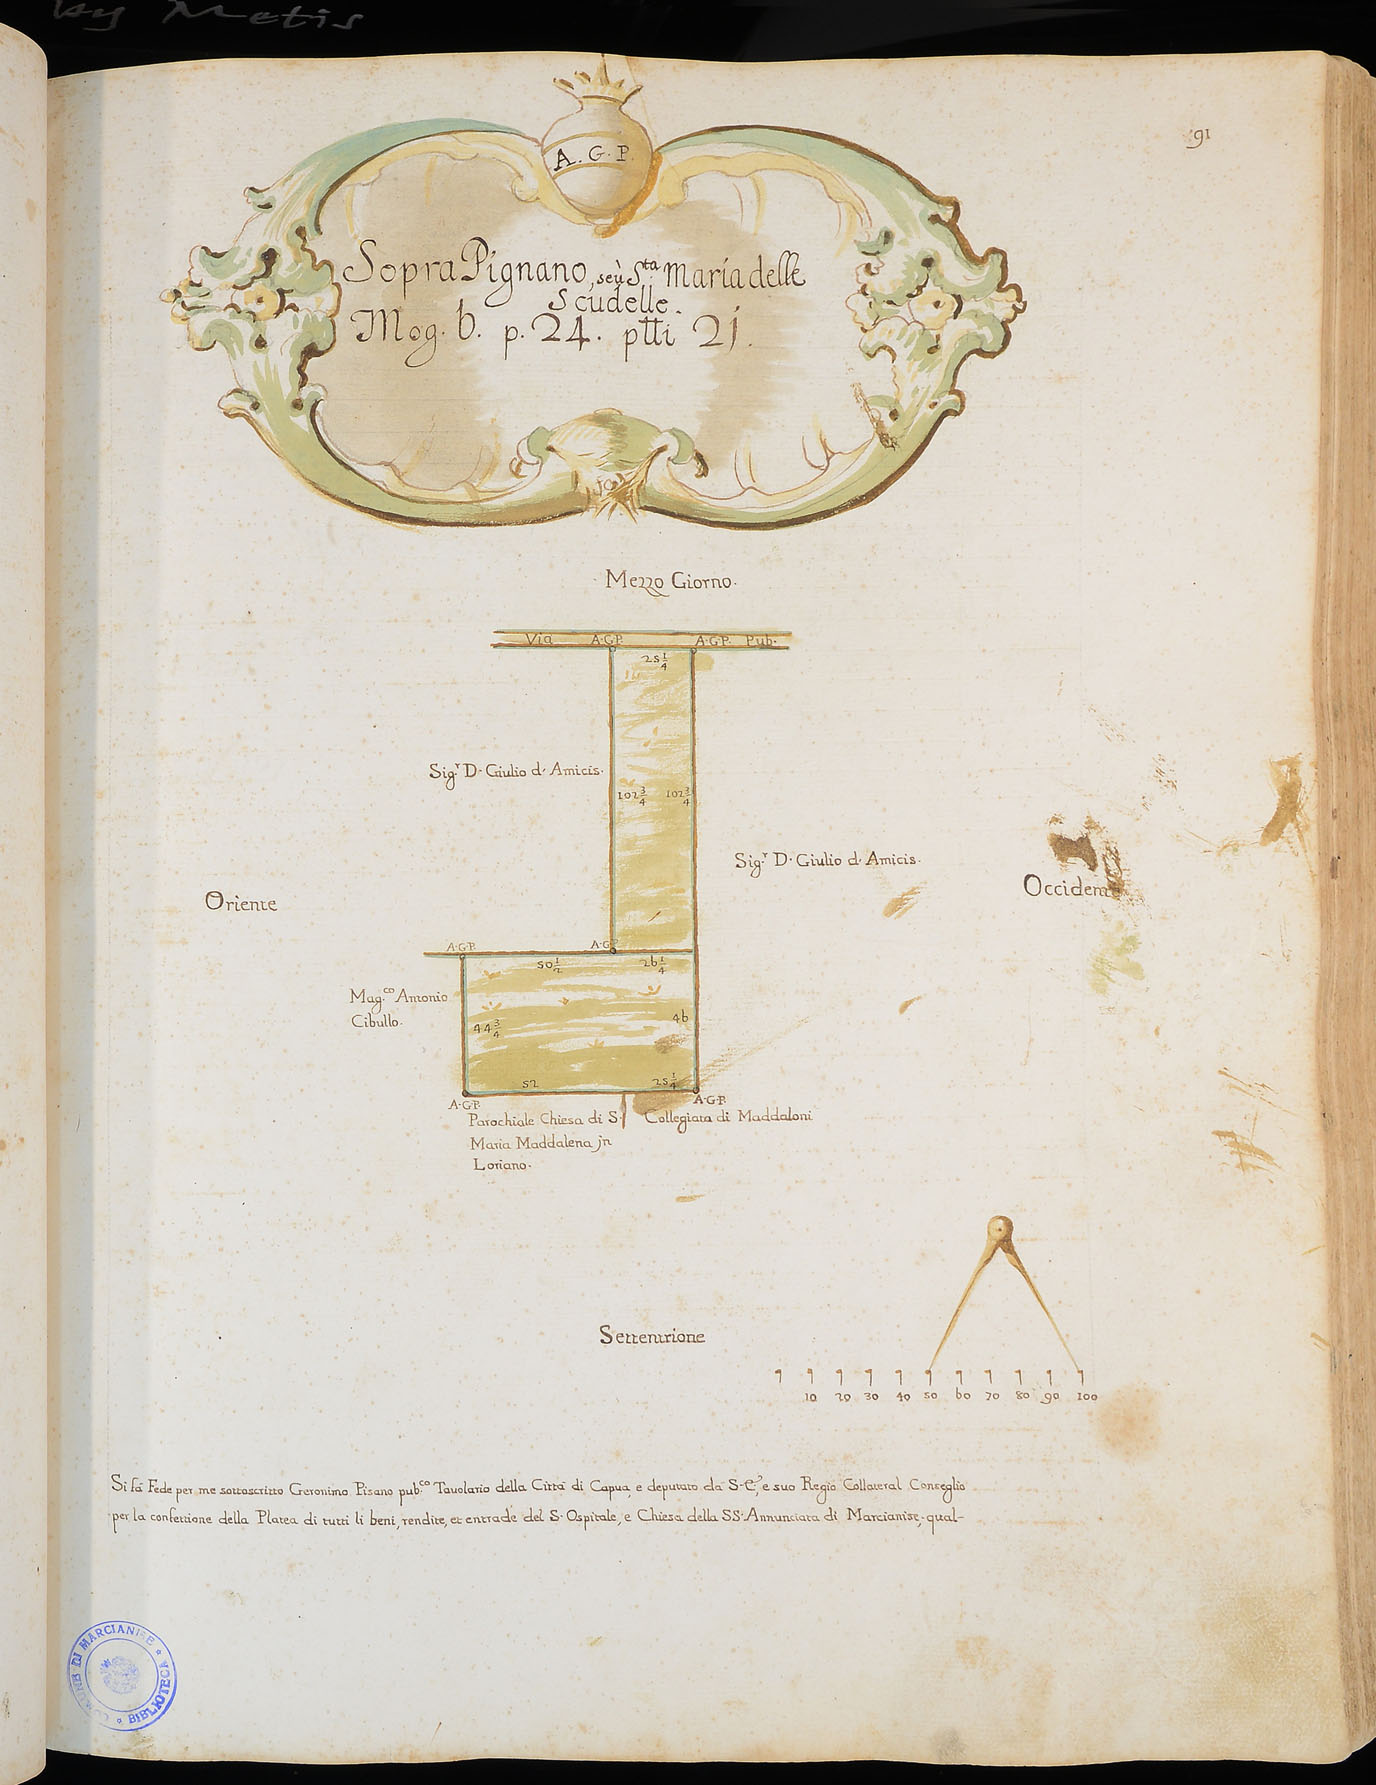 by Metis
91
A. G. P.
Sopra Pignano, seù S.ta Maria delle
Scudelle.
Mog. 6. p. 24. ptti 21.
Mezzo Giorno.
Via A.G.P. A.G.P. Pub.
25 1/4
Sig.r D. Giulio d'Amicis.
102 3/4 102 3/4
Sig.r D. Giulio d'Amicis.
Oriente
Occidente
A.G.P. A.G.P.
50 1/2 26 1/4
Mag.co Antonio
Cibullo.
44 3/4 46
52 25 1/4
A.G.P. A.G.P.
Parochiale Chiesa di S. Collegiata di Maddaloni
Maria Maddalena jn
Loriano.
Settentrione
10 20 30 40 50 60 70 80 90 100
Si fà Fede per me sottoscritto Geronimo Pisano pub.co Tavolario della Città di Capua, e deputato da S. E., e suo Regio Collateral Conseglio
per la confettione della Platea di tutti li beni, rendite, et entrade del S. Ospitale, e Chiesa della SS. Annunciata di Marcianise, qual-
COMUNE DI MARCIANISE * BIBLIOTECA *